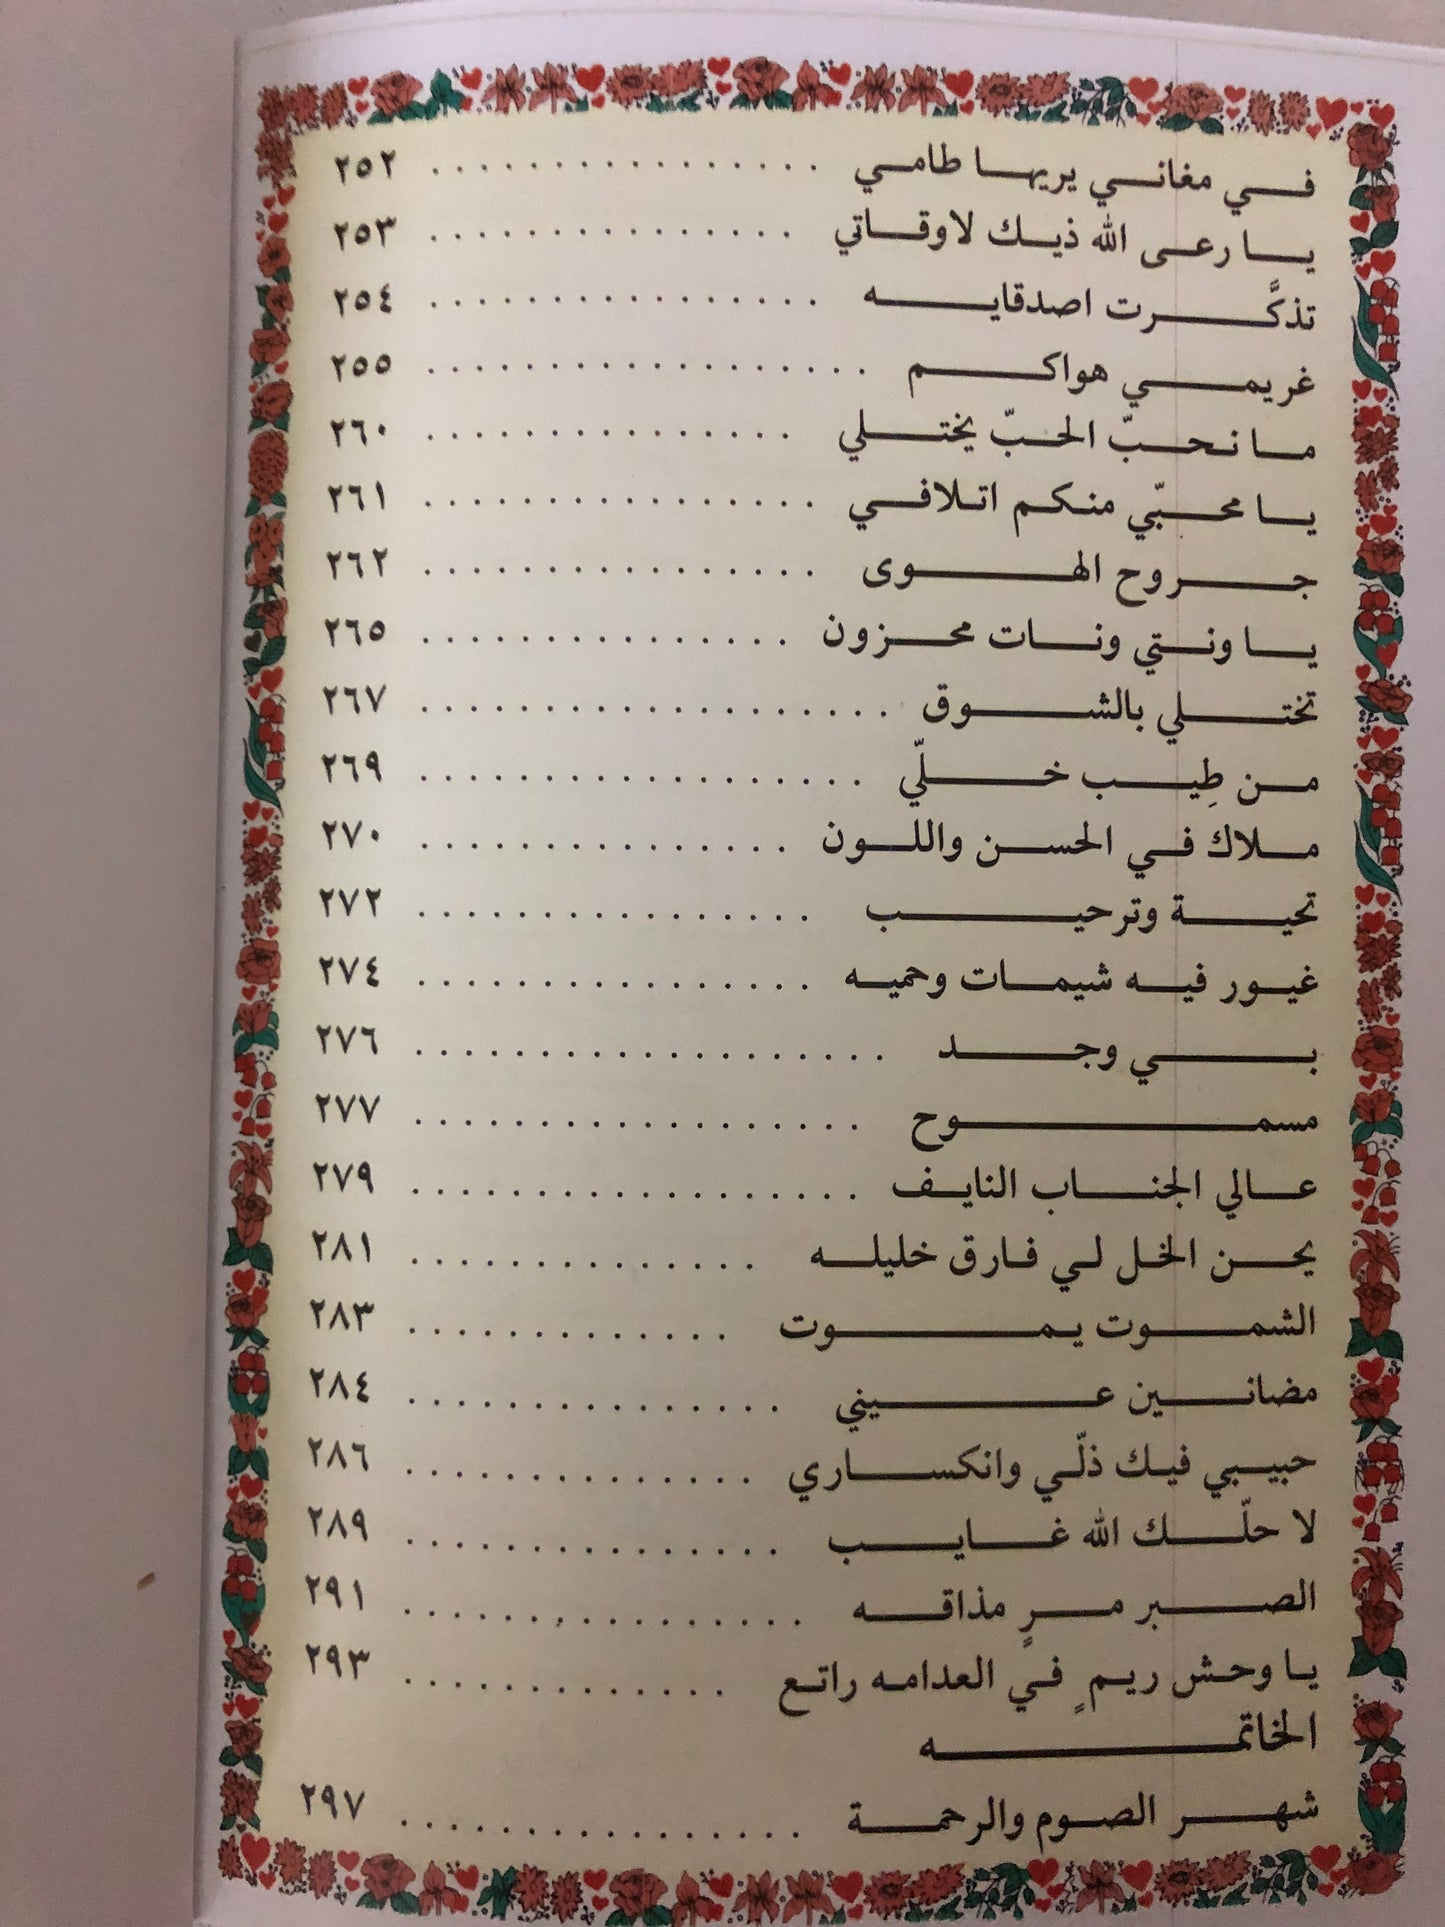 في مغاني يريها طامي . . . . . . . . . . . . . . . . ٢٥٢
يا رعى الله ذيك لاوقاتي . . . . . . . . . . . . . . . ٢٥٣
تذكَّرت اصدقايه . . . . . . . . . . . . . . . . ٢٥٤
غريمي هواكم . . . . . . . . . . . . . . . . . . ٢٥٥
ما نحبّ الحبّ يختلي . . . . . . . . . . . . . . . ٢٦٠
يا محبّي منكم اتلافي . . . . . . . . . . . . . . . . ٢٦١
جروح الهوى . . . . . . . . . . . . . . . . ٢٦٢
يا ونتي ونات محزون . . . . . . . . . . . . . . . ٢٦٥
تختلي بالشوق . . . . . . . . . . . . . . . . . . . ٢٦٧
من طِيب خلّي . . . . . . . . . . . . . . . . . . ٢٦٩
ملاك في الحسن واللون . . . . . . . . . . . . . . . ٢٧٠
تحية وترحيب . . . . . . . . . . . . . . . . ٢٧٢
غيور فيه شيمات وحميه . . . . . . . . . . . . . . . . ٢٧٤
بي وجد . . . . . . . . . . . . . . . . . . . ٢٧٦
مسموح . . . . . . . . . . . . . . . . . . ٢٧٧
عالي الجناب النايف . . . . . . . . . . . . . . . . . . ٢٧٩
يحن الخل لي فارق خليله . . . . . . . . . . . . . . ٢٨١
الشموت يموت . . . . . . . . . . . . . ٢٨٣
مضانين عيني . . . . . . . . . . . . . . . ٢٨٤
حبيبي فيك ذلّي وانكساري . . . . . . . . . . . . . . ٢٨٦
لا حلّك الله غايب . . . . . . . . . . . . . . . ٢٨٩
الصبر مرٍ مذاقه . . . . . . . . . . . . . . . . ٢٩١
يا وحش ريمٍ في العدامه راتع . . . . . . . . . . . . . ٢٩٣
الخاتمه
شهر الصوم والرحمة . . . . . . . . . . . . . . . . ٢٩٧